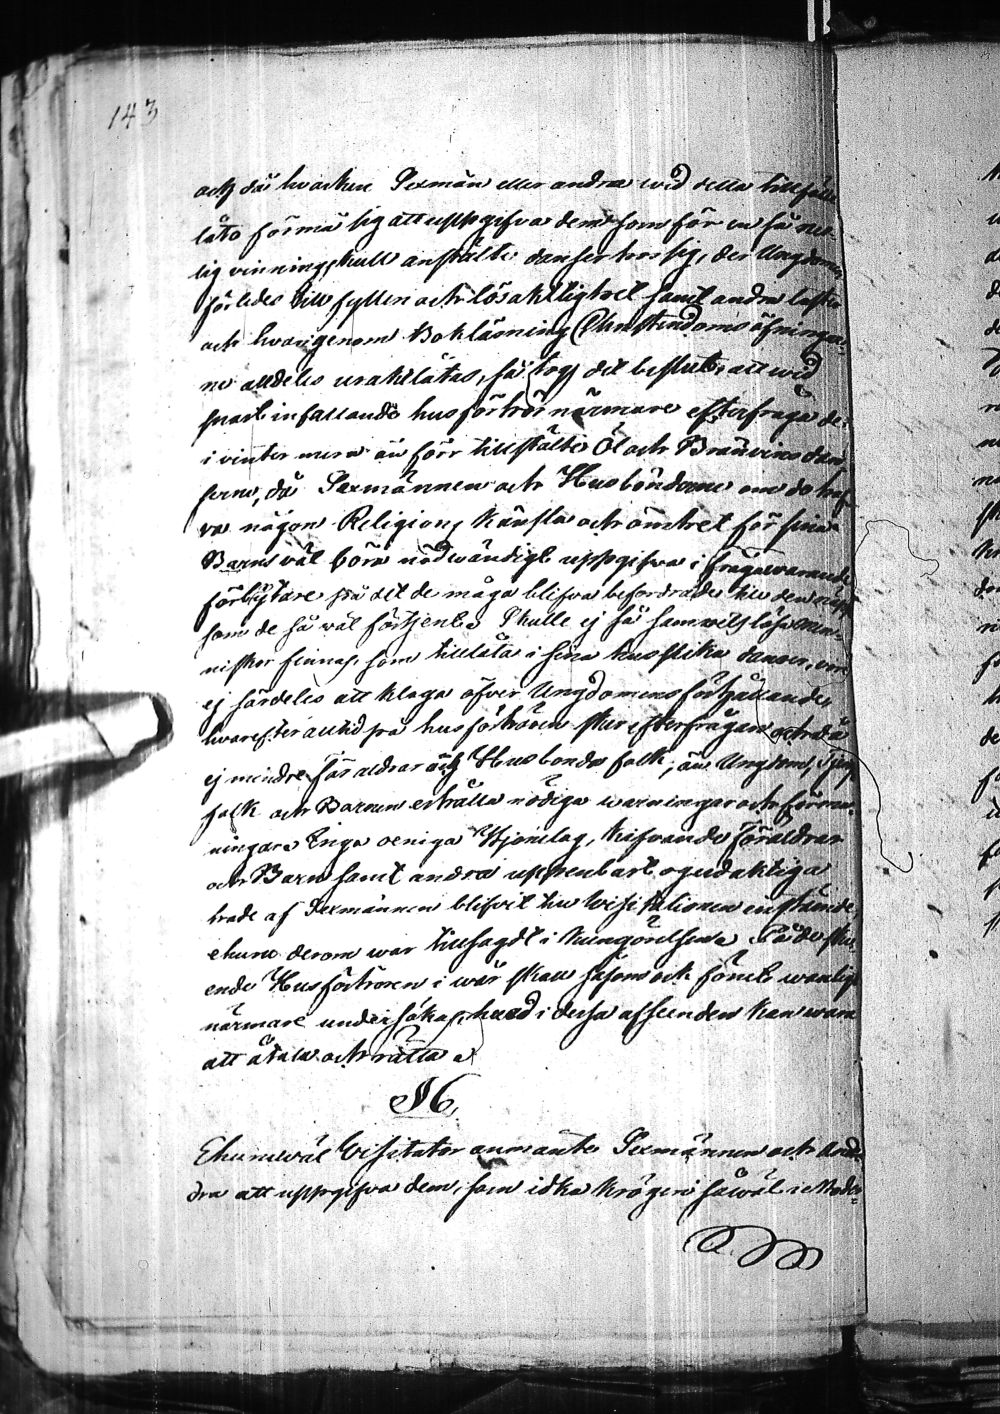 143
och då hvarken Sexmän eller andra wid detta tillfälle
läto förmå sig att uppgifva dem som för en så
lig vinning skull anstälte danser hos sig, der Ungdomen
förledes till fylleri och lösaktighet samt andra laster
och hvarigenom Bokläsning Christendoms öfningar
ne alldeles uraktlåtas, så tog det beslut, att wid
snart infallande husförhör närmare efterfråga de
i vinter mera än förr tillstälte Öl och Bränvins dan
serne, då Sexmännen och Husbönderne om de haf
va någon Religions känsla och ömhet för sina
Barns väl böra nödwändigt uppgifva i frågawarande
förbrytare på det de måga blifva befordrade till den näpst
som de så väl förtjent. Skulle ej så samwetslösa men
niskor finnas, som tillåta i sina hus slika danser, vore
ej särdeles att klaga öfver Ungdomens förhållande,
hvarefter alltid på husförhören sker efterfrågan och då
ej mindre Föräldrar och Husbonde folk, än Ungdom, Tjenst
folk och Barnen erhålla nödiga warningar och förma
ningar. Inga oeniga Hjonelag, kifvande Föräldrar
och Barn samt andra uppenbart ogudaktiga
hade af Sexmännen blifvit till Visitationen instämde,
ehuru derom war tillsagdt i kungörelsen. På de sku
ende Husförhören i wår skall såsom ock förut wanligt
närmare undersökas, hvad i dessa afseenden kan wara
att åtala och rätta.
§ 6.
Ehuruwäl Visitator anmante Sexmännen och And
dra att uppgifva dem, som idka krögeri såwäl i Moder=